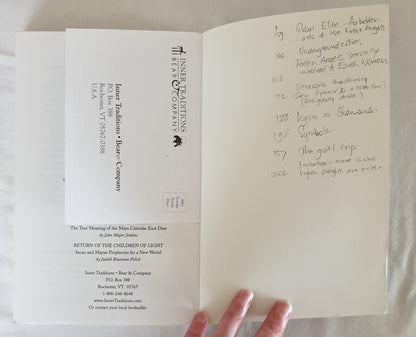 INNER TRADITIONS
BEAR & COMPANY
Inner Traditions • Bear & Company
P.O. Box 388
Rochester, VT 05767-0388
U.S.A.
Affix
Postage
Stamp
Here
The True Meaning of the Maya Calendar End-Date
by John Major Jenkins
RETURN OF THE CHILDREN OF LIGHT
Incan and Mayan Prophecies for a New World
by Judith Bluestone Polich
Inner Traditions • Bear & Company
P.O. Box 388
Rochester, VT 05767
1-800-246-8648
www.InnerTraditions.com
Or contact your local bookseller
Pg Global Elite - forbidden
arts of the Fallen Angels
160 Underground cities.
Fallen Angels sexually
involved to Earth Women
163
Ultrasonic Machining
172
(Antigravity device)
188
198 Symbols
157 The guilt trip
226 higher energies are